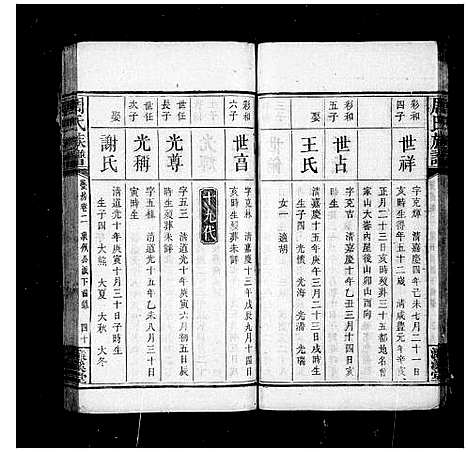 周氏族譜
彩和
四子
世祥
字克輝 清嘉慶四年己未七月二十一日
亥時生得年五十二歲 清咸豐元年辛亥
正月二十三日亥時歿葬三十五都地名曾
家山大崙岩屋後山卯山酉向
彩和
五子
世占
字克吉 清嘉慶十年乙丑三月十四日寅
時生歿葬未詳
娶
王氏
清嘉慶十五年庚午三月二十三日戌時生
子四 光懷 光海 光清 光瑞
女一 適胡
彩和
六子
世喜
字克林 清嘉慶十三年戊辰九月十四日
亥時生歿葬未詳
十九代
世任
長子
光尊
字五三 清道光十五年乙未八月三十日
時生歿葬未詳
世任
次子
光稱
清道光十年庚寅六月初五日辰
時生歿葬未詳
娶
謝氏
清道光十年庚寅十月三十日子時生
生子四 大熊 大夏 大秋 大冬
周氏族譜
四十